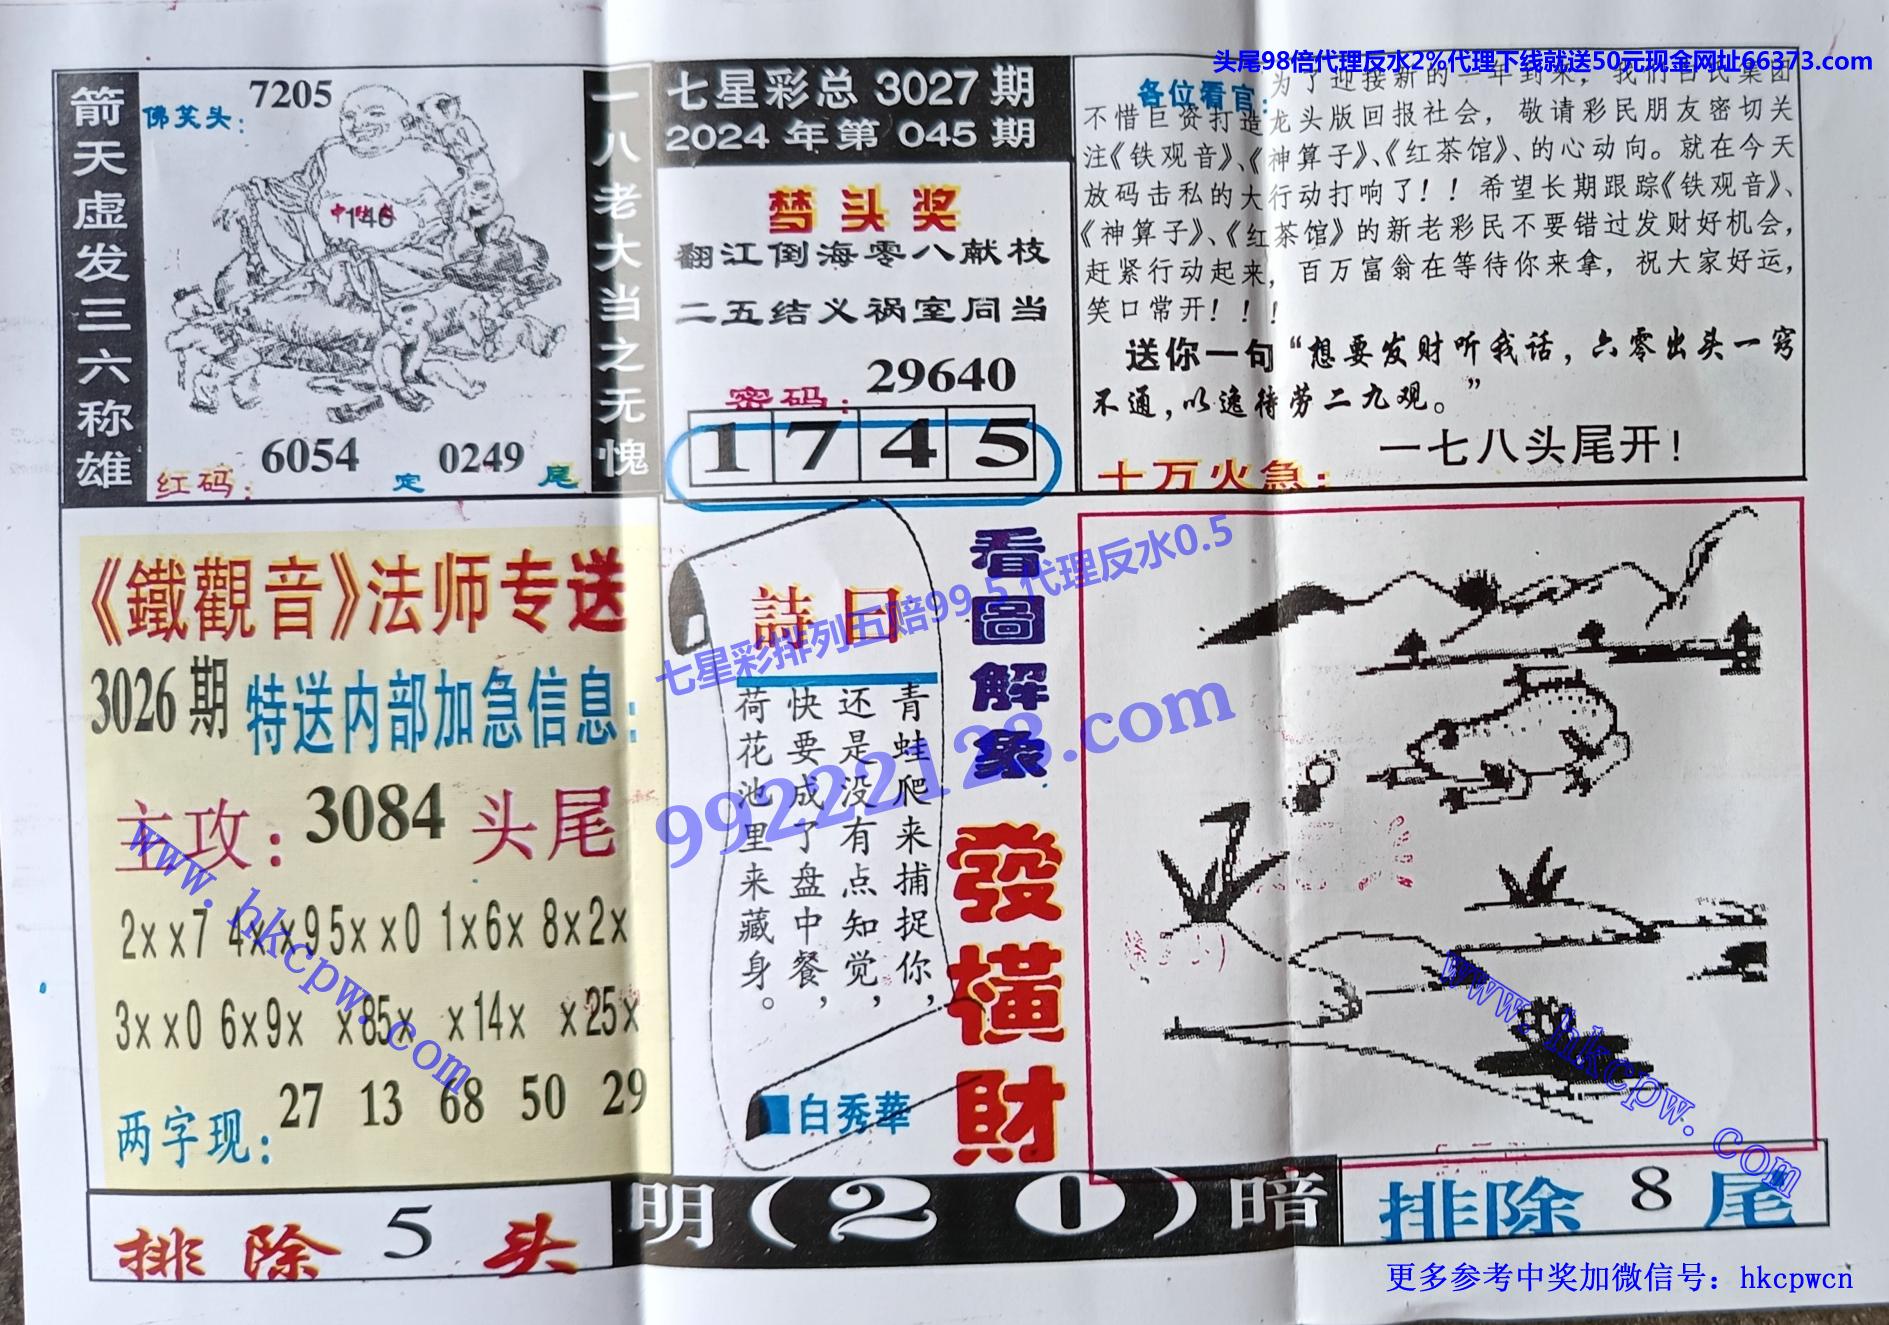 头尾98倍代理反水2%代理下线就送50元现金网址66373.com
箭天虚发三六称雄
佛笑头：
7205
146
6054
0249
红码：
定
尾
一八老大当之无愧
七星彩总 3027 期
2024 年第 045 期
梦头奖
翻江倒海零八献枝
二五结义祸室同当
29640
密码：
1 7 4 5
各位看官：
为了迎接新的一年到来，我们百民集团
不惜巨资打造龙头版回报社会，敬请彩民朋友密切关
注《铁观音》、《神算子》、《红茶馆》、的心动向。就在今天
放码击私的大行动打响了！！希望长期跟踪《铁观音》、
《神算子》、《红茶馆》的新老彩民不要错过发财好机会，
赶紧行动起来，百万富翁在等待你来拿，祝大家好运，
笑口常开！！！
送你一句“想要发财听我话，六零出头一窍
不通，以逸待劳二九观。”
一七八头尾开！
十万火急：
《鐵觀音》法师专送
3026期 特送内部加急信息：
主攻：3084头尾
2××7 4××9 5××0 1×6× 8×2×
3××0 6×9× ×85× ×14× ×25×
两字现：27 13 68 50 29
詩曰
青蛙爬来捕捉你，
还是没有点知觉，
快要成了盘中餐，
荷花池里来藏身。
白秀華
看圖解象
發橫財
七星彩排列五赔99.5 代理反水0.5
99222128.com
www.hkcpw.com
www.hkcpw.com
排除 5 头
明（2 0）暗
排除 8 尾
更多参考中奖加微信号：hkcpwcn